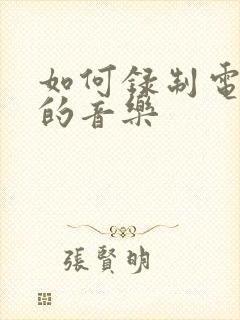 如何录制電
的音樂
張賢明